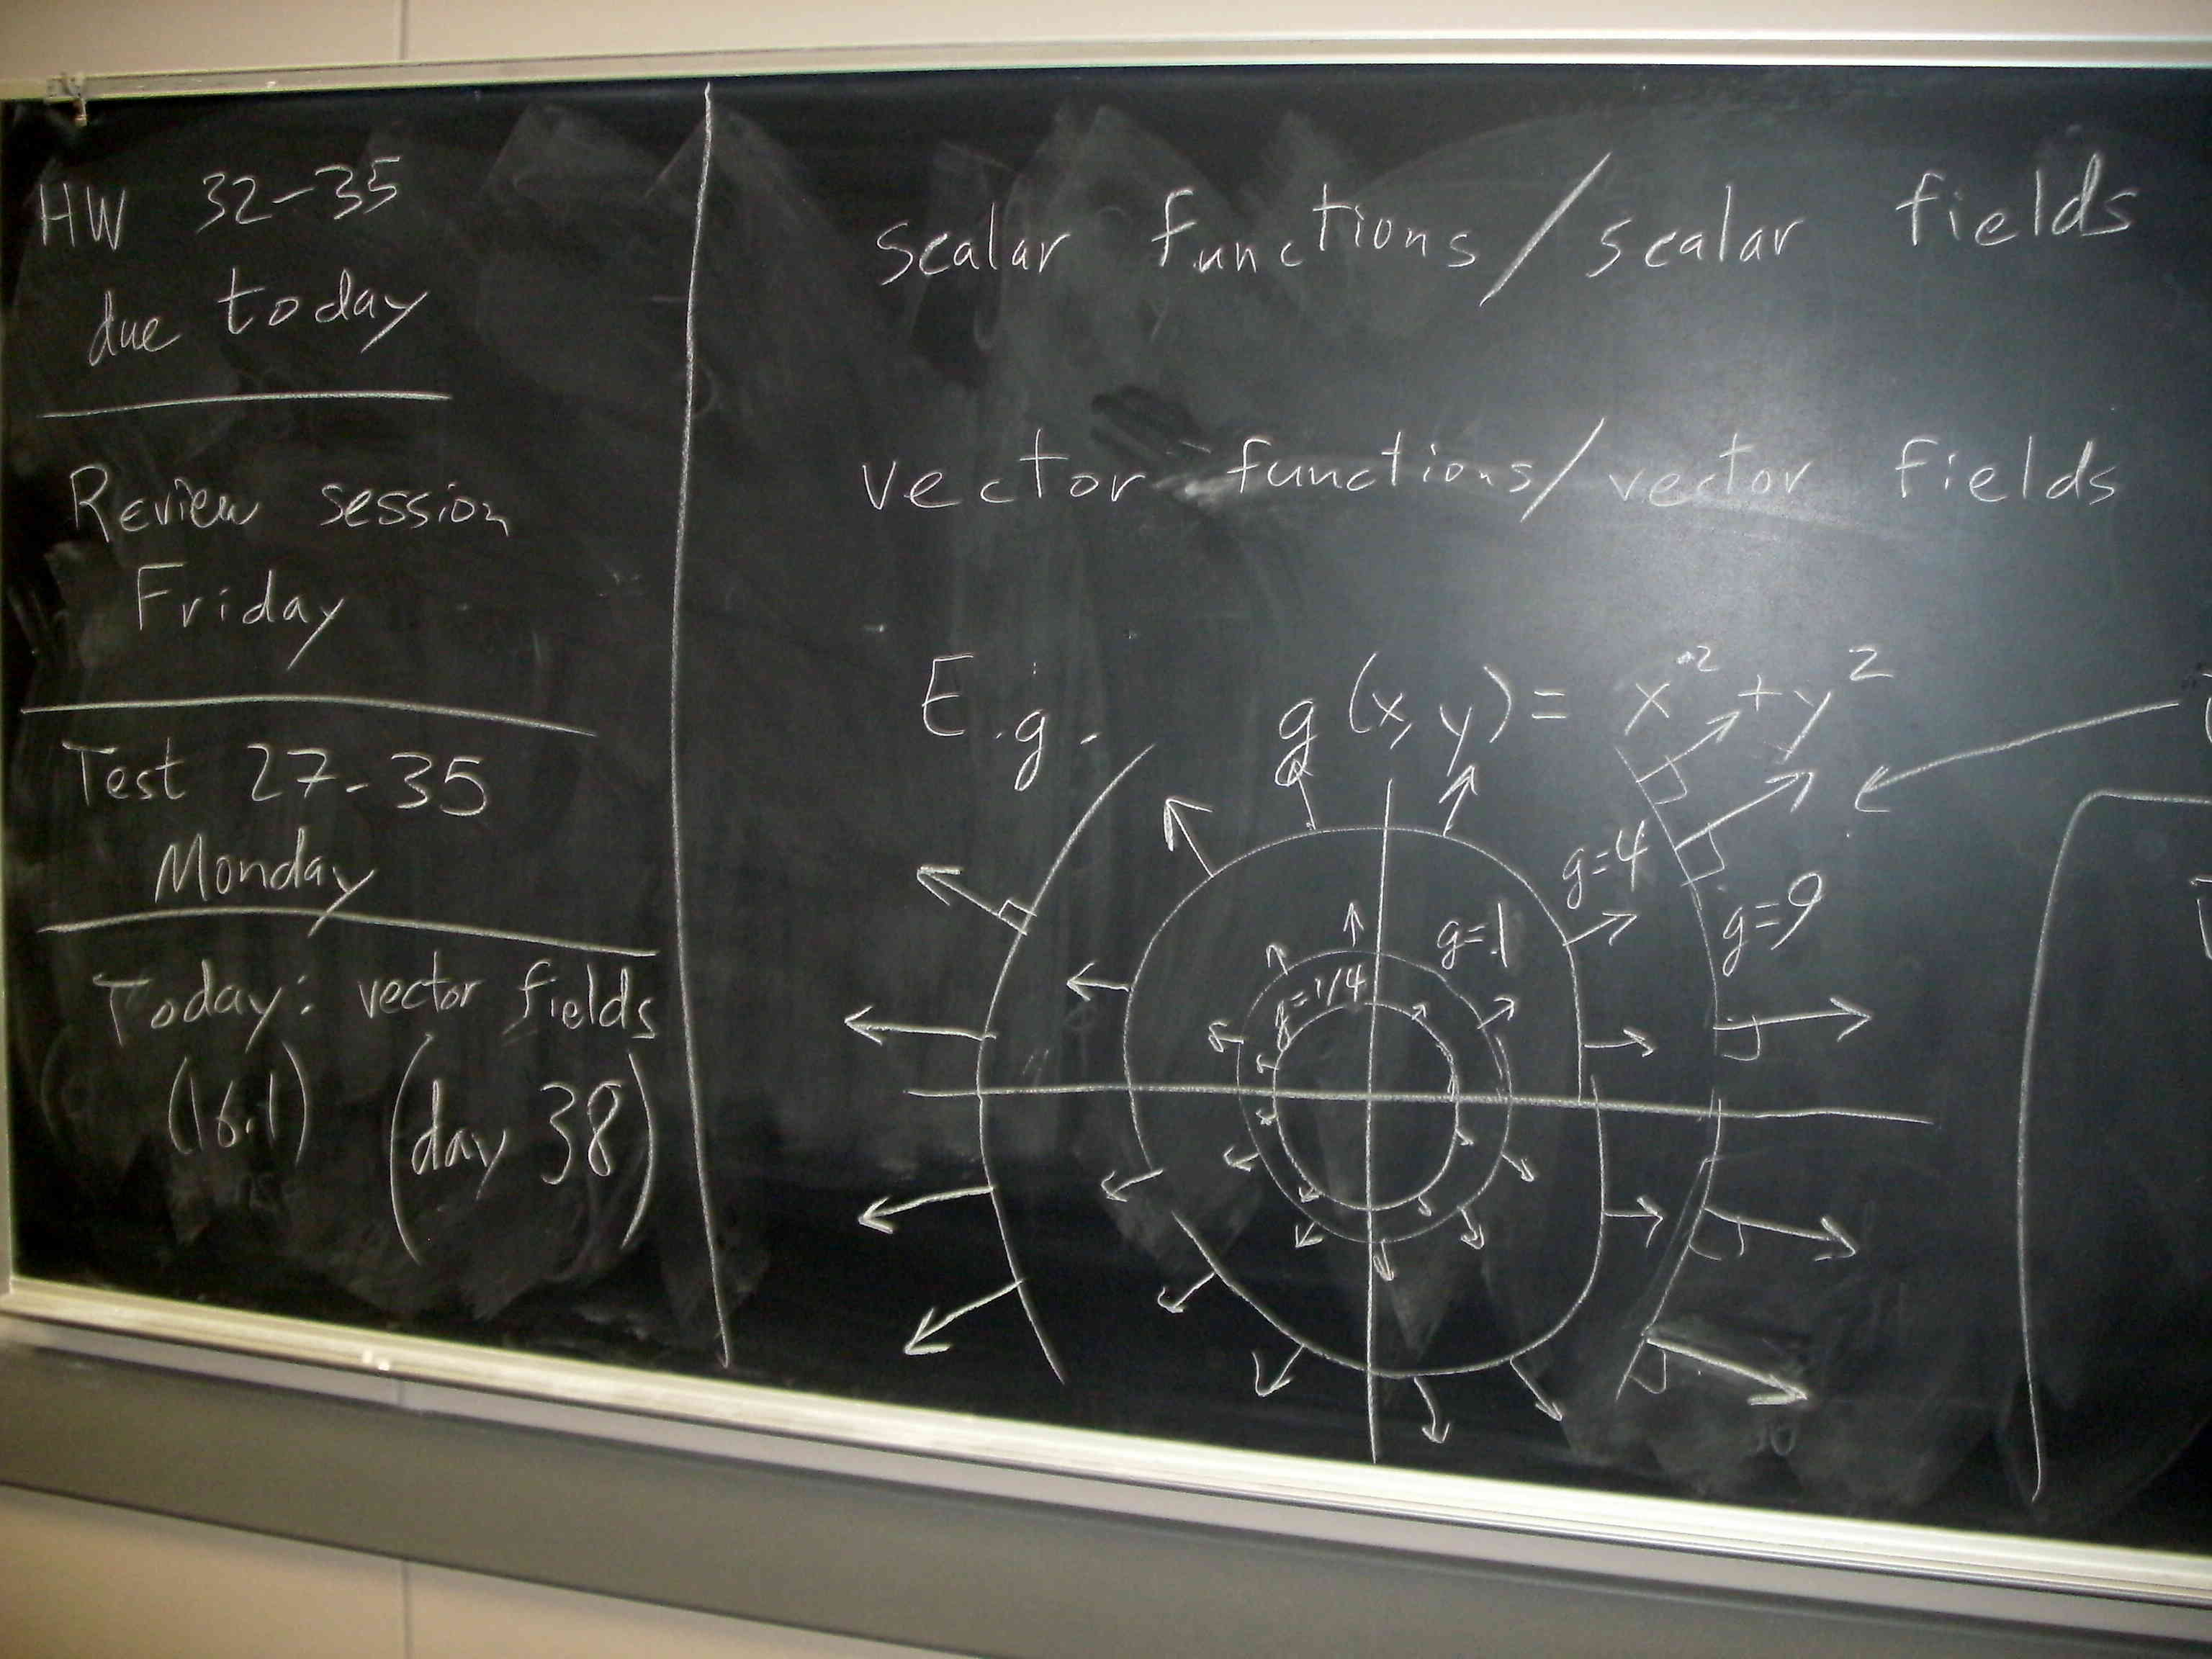 HW 32-35
due today
Review session
Friday
Test 27-35
Monday
Today: vector fields
(16.1) (day 38)
scalar functions/scalar fields
vector functions/vector fields
E.g. g(x,y) = x²+y²
g=4
g=9
g=1
g=1/4